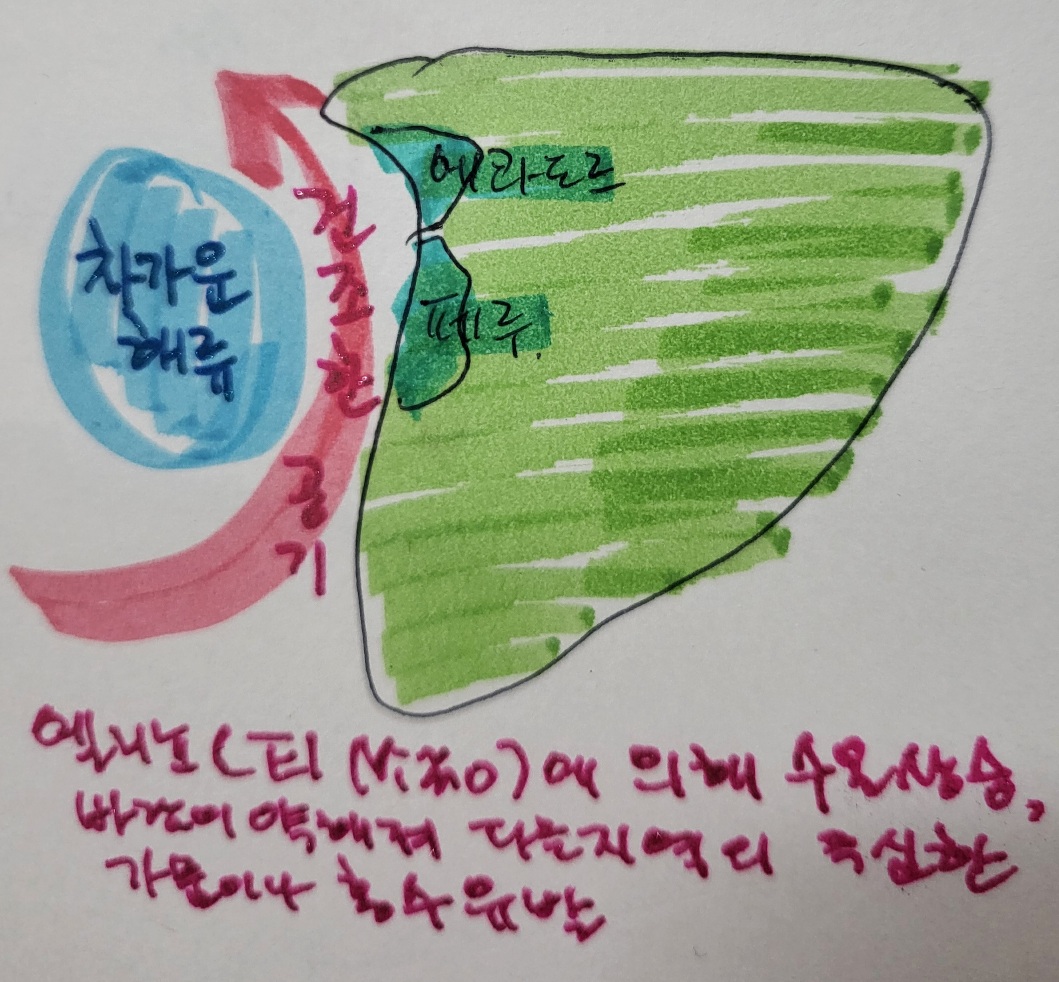 차가운
해류
건조한
공기
에콰도르
페루.
엘니뇨 (El Niño)에 의해 수온상승,
바람이 약해져 다른지역의 극심한
가뭄이나 홍수 유발